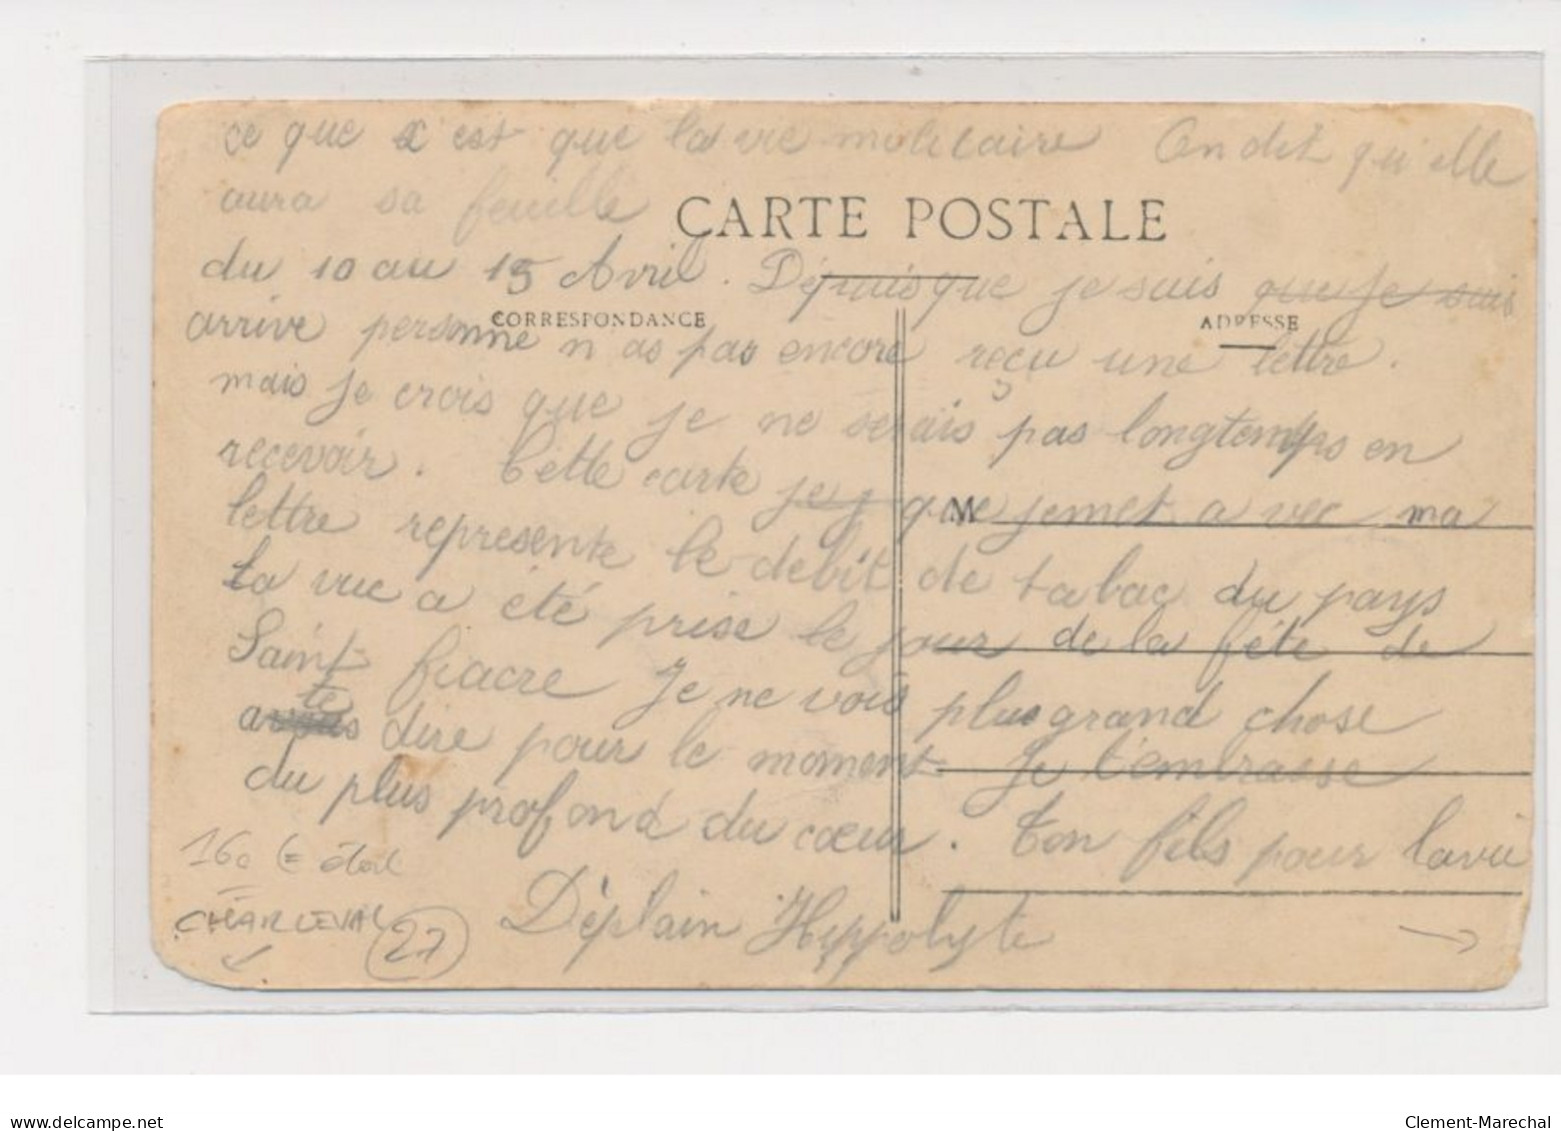 ce que c est que la vie molitaire On dit qu'elle
aura sa feuille
CARTE POSTALE
du 10 au 15 Avril. Dépuisque je suis que je suis
CORRESPONDANCE
ADRESSE
arrive personne n as pas encore reçu une lettre.
mais je crois que je ne serais pas longtemps en
recevoir. Cette carte je j que jemet a vec ma
M
lettre represente le debit de tabac du pays
La vue a été prise le jour de la fête de
Saint fiacre Je ne vois plus grand chose
a te dire pour le moment Je t'embrasse
du plus profond du cœur. Ton fils pour la vie
Déplain Hippolyte
16c
CHARLEVAL 27
www.delcampe.net
Clement-Marechal